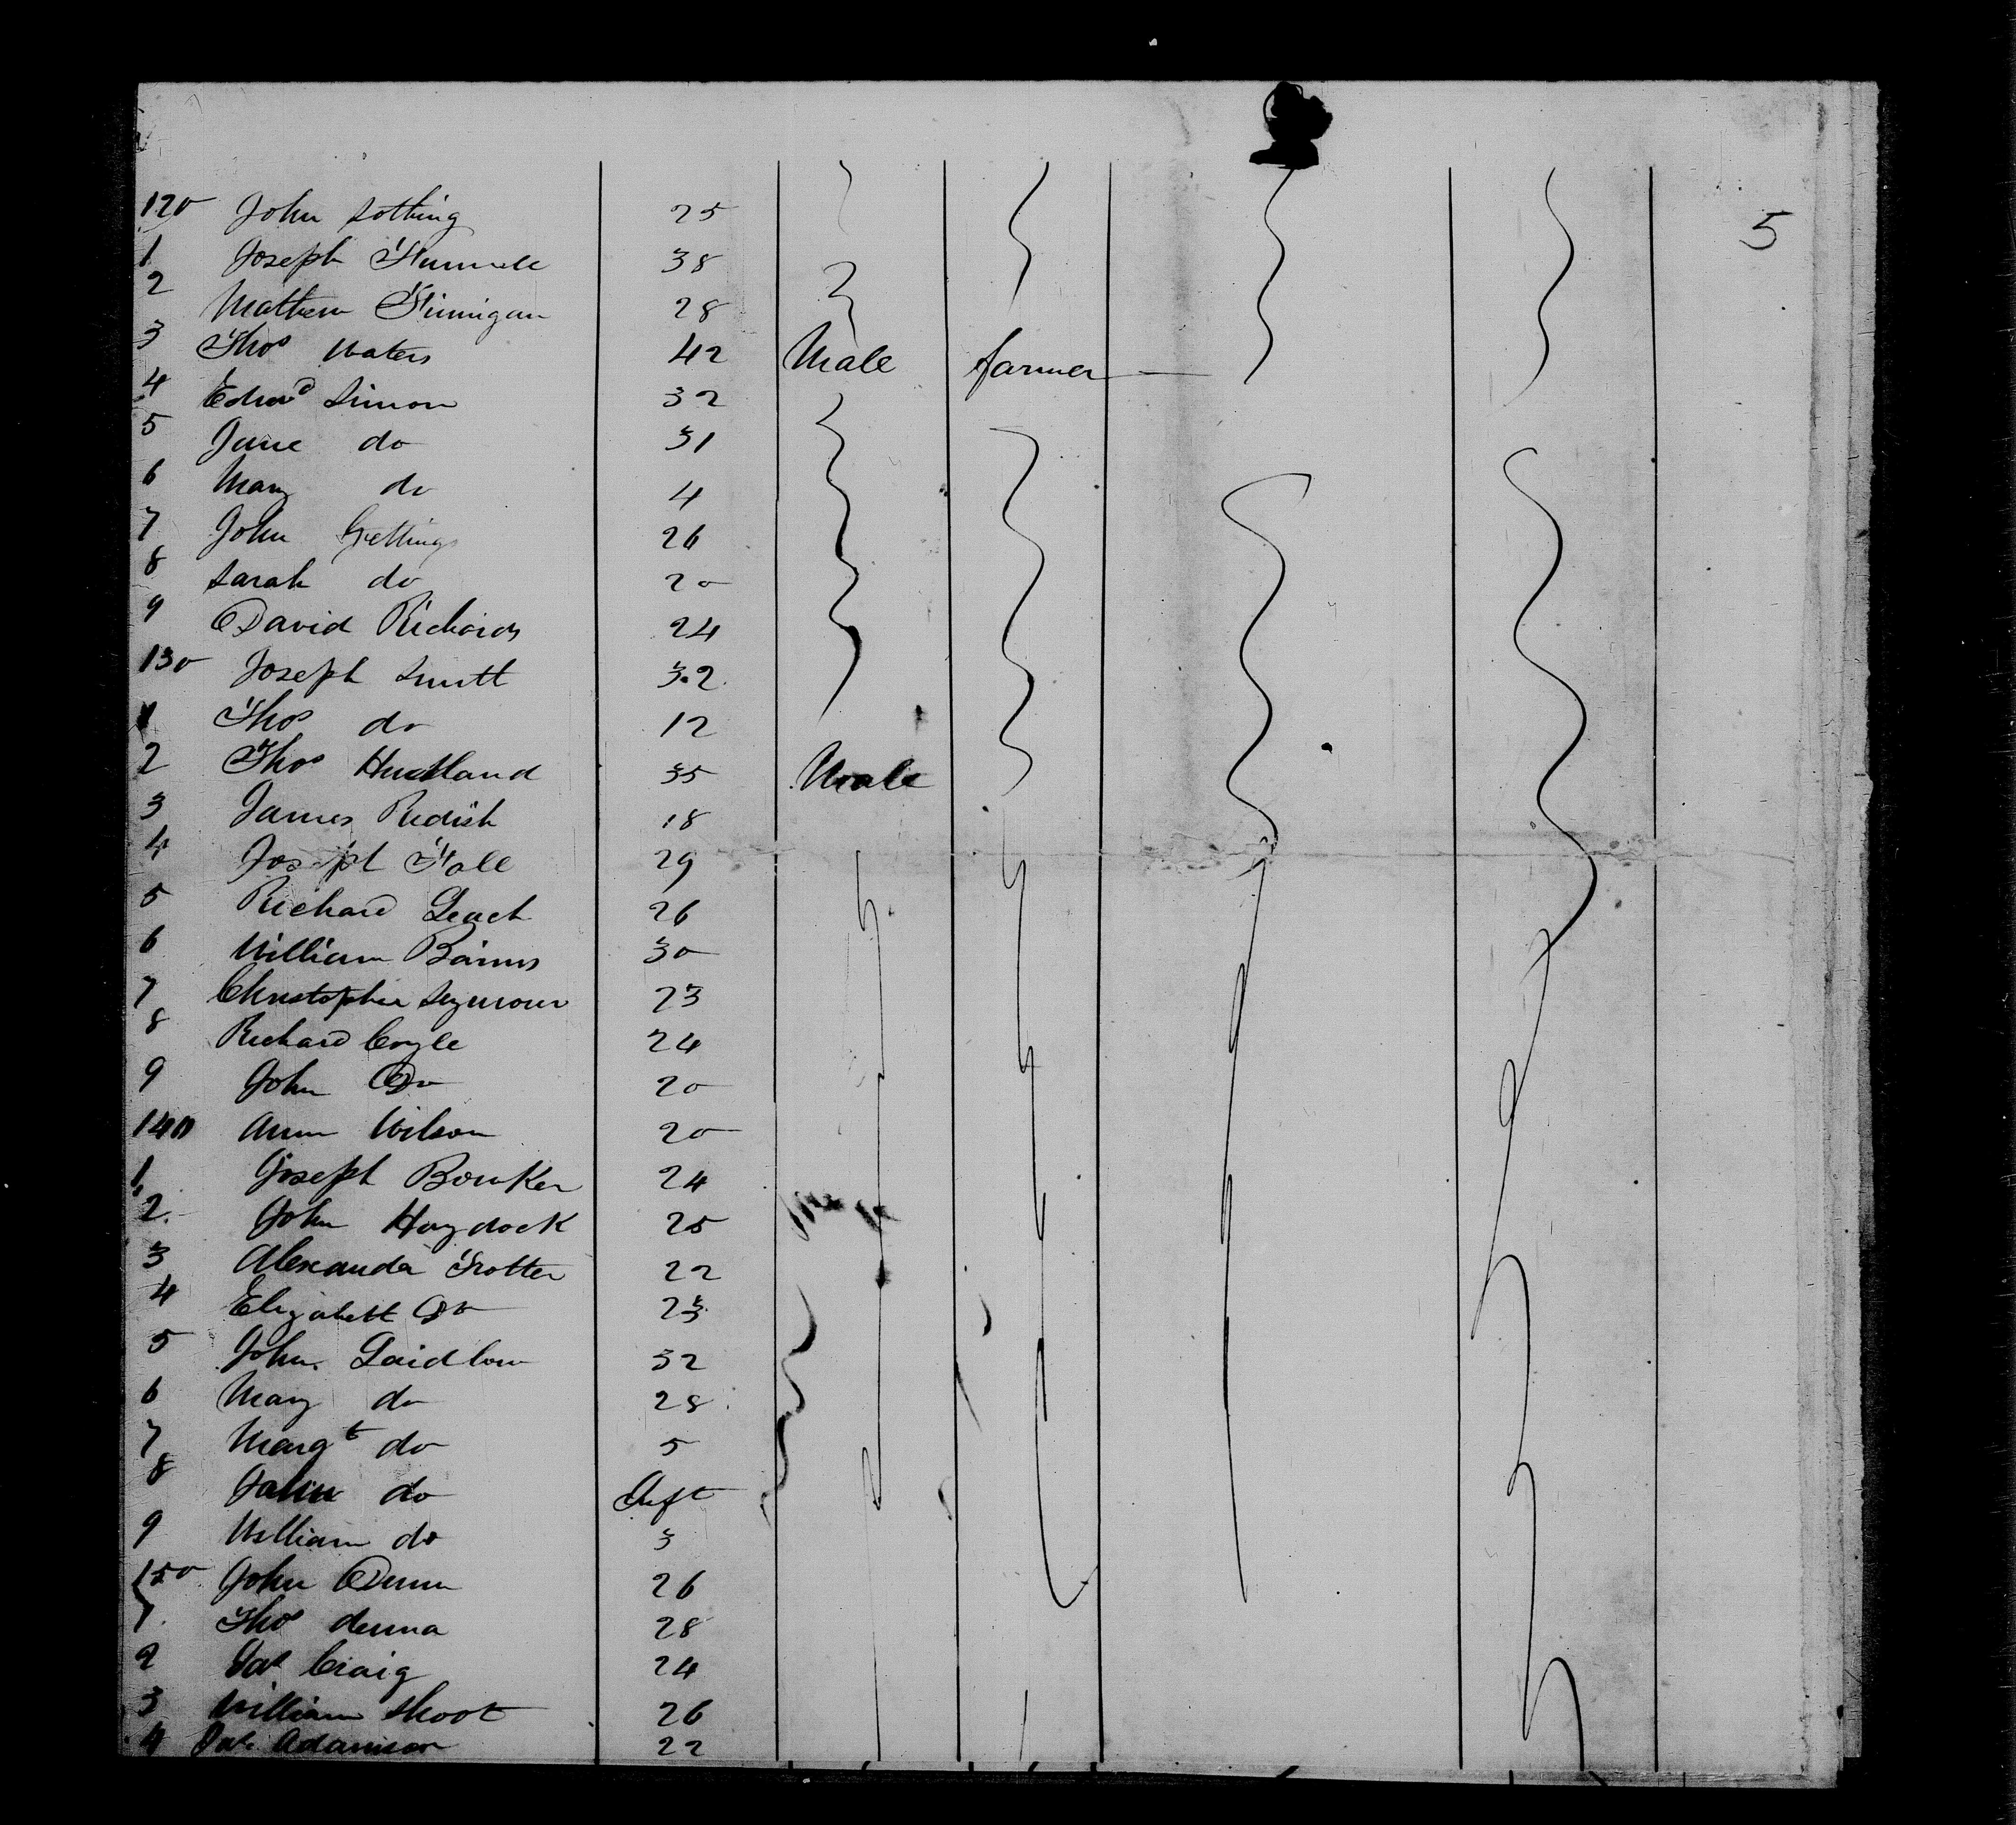 5
120 John Sothing 25
1 Joseph 38
2 Mathew Finnigan 28
3 Thos Waters 42 Male farmer
4 Edwd Simon 32
5 Jane do 31
6 Mary do 4
7 John Gettings 26
8 Sarah do 20
9 David Richards 24
130 Joseph Smith 32
1 Thos do 12
2 Thos 35 Male
3 James Redish 18
4 Joseph 29
5 Richard Leach 26
6 William 30
7 Christopher Seymour 23
8 Richard Coyle 24
9 John Do 20
140 Ann Wilson 20
1 Joseph Bowker 24
2 John Haydock 25
3 Alexander Trotter 22
4 Elizabeth Do 23
5 John Laidlow 32
6 Mary do 28
7 Margt do 5
8 do Inft
9 William do 3
150 John Dunn 26
1 Thos 28
2 Pat Craig 24
3 William Shoot 26
4 Adamson 22